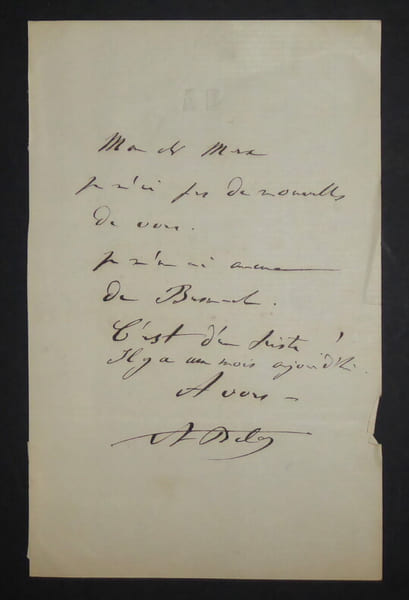 Mon ch Max
je n'ai pas de nouvelles
de vous.
je n'en ai aucune
de
C'est d'un triste !
Il y a un mois aujourd'hui.
A vous –
A Belot